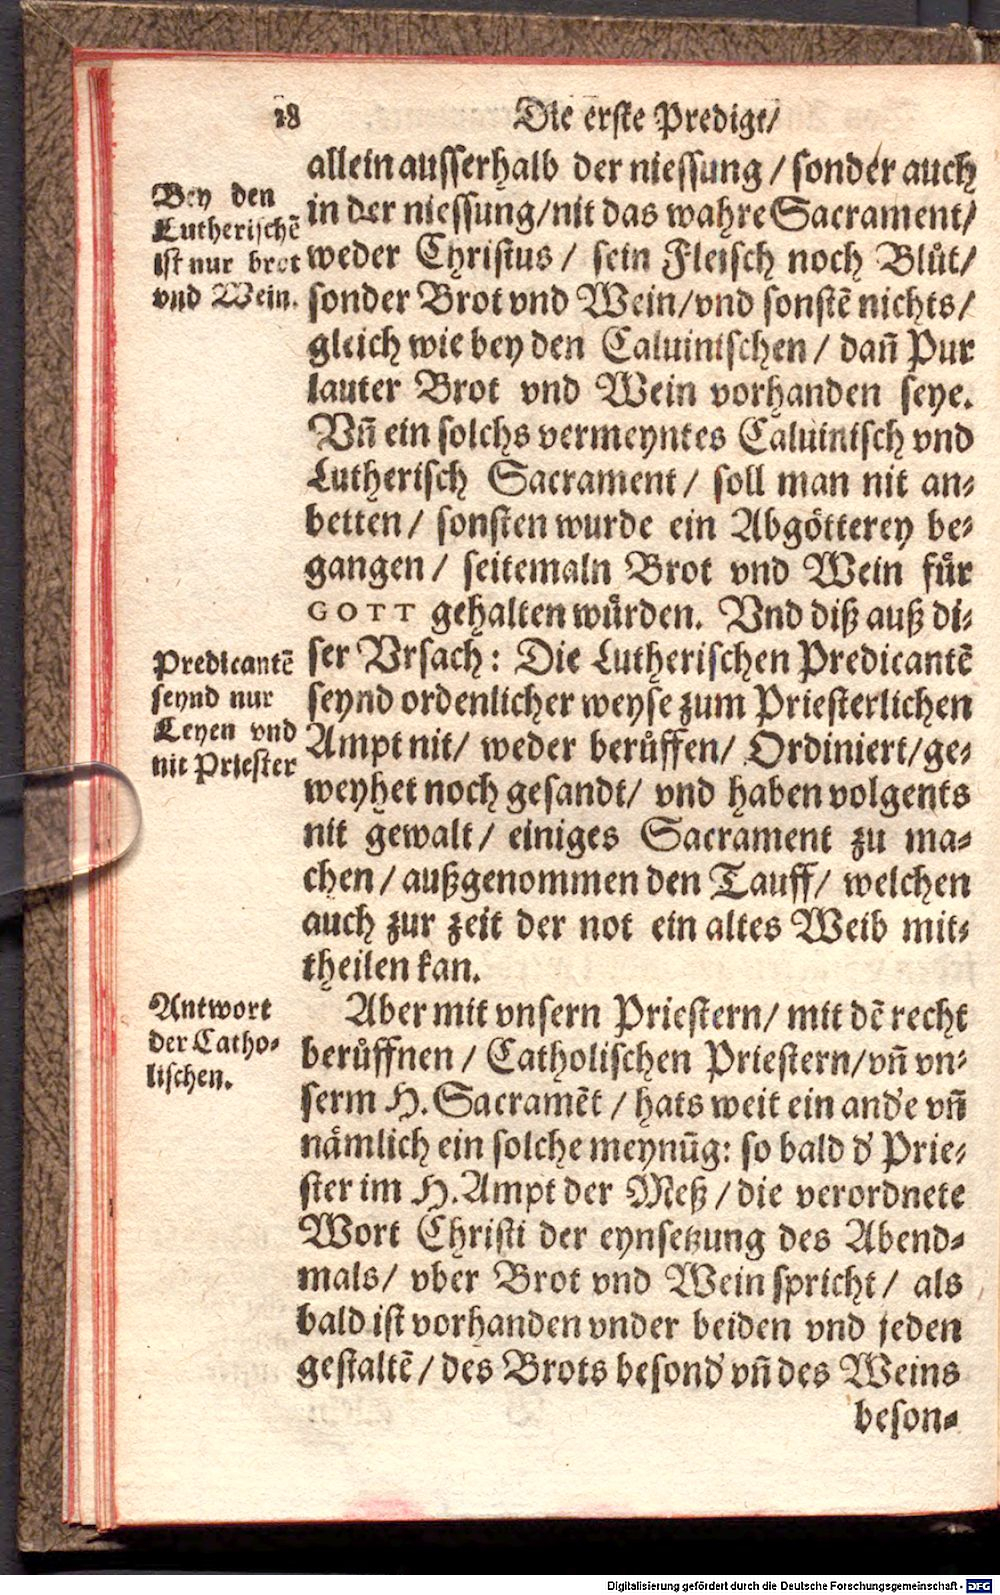 18 Die erste Predigt/
allein ausserhalb der niessung / sonder auch
in der niessung/nit das wahre Sacrament/
weder Christus / sein Fleisch noch Blůt/
sonder Brot vnd Wein/vnd sonstē nichts/
gleich wie bey den Caluinischen / dañ Pur
lauter Brot vnd Wein vorhanden seye.
Vñ ein solchs vermeyntes Caluinisch vnd
Lutherisch Sacrament / soll man nit an-
betten / sonsten wurde ein Abgötterey be-
gangen / seitemaln Brot vnd Wein für
GOTT gehalten würden. Vnd diß auß di-
ser Vrsach: Die Lutherischen Predicantē
seynd ordenlicher weyse zum Priesterlichen
Ampt nit/ weder berůffen/ Ordiniert/ge-
weyhet noch gesandt/ vnd haben volgents
nit gewalt / einiges Sacrament zu ma-
chen / außgenommen den Tauff/ welchen
auch zur zeit der not ein altes Weib mit-
theilen kan.
Aber mit vnsern Priestern/ mit dē recht
berůffnen / Catholischen Priestern/vñ vn-
serm H. Sacramēt / hats weit ein and'e vñ
nämlich ein solche meynūg: so bald d' Prie-
ster im H. Ampt der Meß / die verordnete
Wort Christi der eynsetzung des Abend-
mals/ vber Brot vnd Wein spricht/ als
bald ist vorhanden vnder beiden vnd jeden
gestaltē / des Brots besond' vñ des Weins
beson-
Bey den
Lutherischē
ist nur brot
vnd Wein.
Predicantē
seynd nur
Leyen vnd
nit Priester
Antwort
der Catho-
lischen.
Digitalisierung gefördert durch die Deutsche Forschungsgemeinschaft - DFG